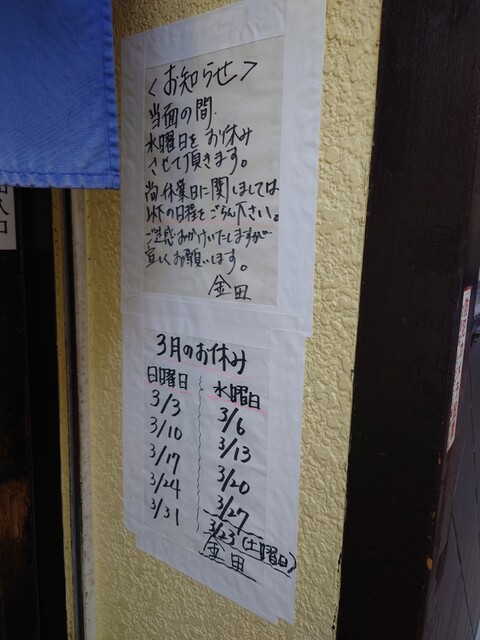 <お知らせ>
当面の間、
水曜日をお休み
させて頂きます。
尚休業日に関しましては
以下の日曜をごらん下さい。
ご迷惑おかけいたしますが
宜しくお願いします。
金田
3月のお休み
日曜日 水曜日
3/3 3/6
3/10 3/13
3/17 3/20
3/24 3/27
3/31 3/23(土曜日)
金田
入口